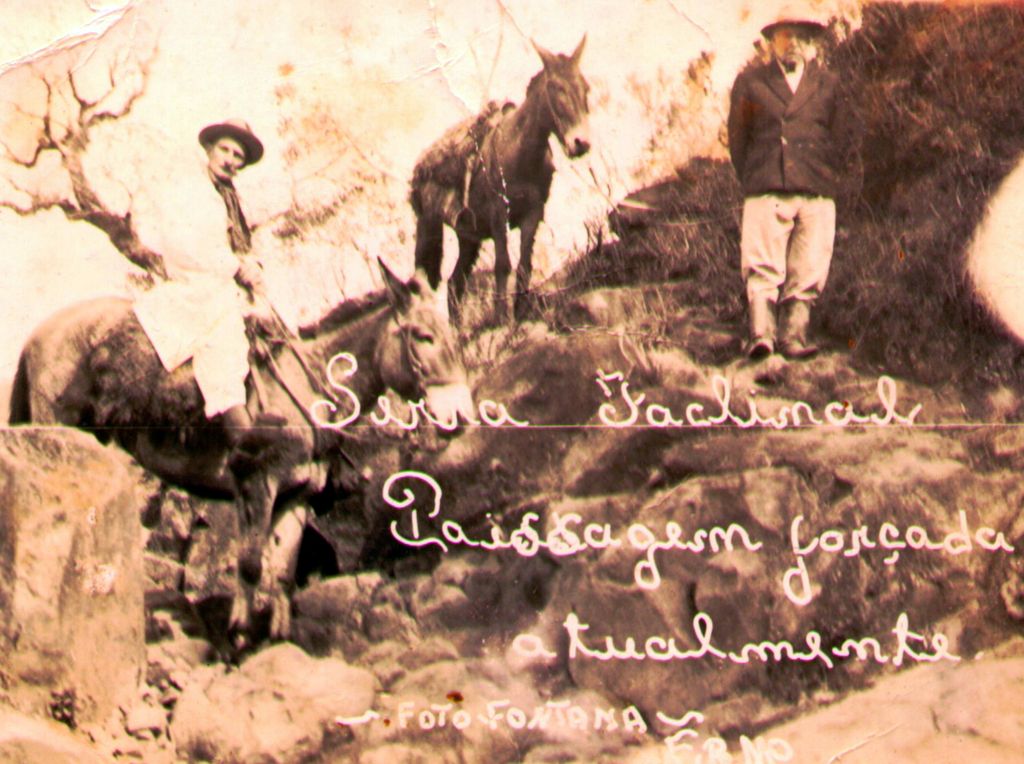 Serra Faclinal
Paissagem forçada
atualmente.
~ FOTO FONTANA ~